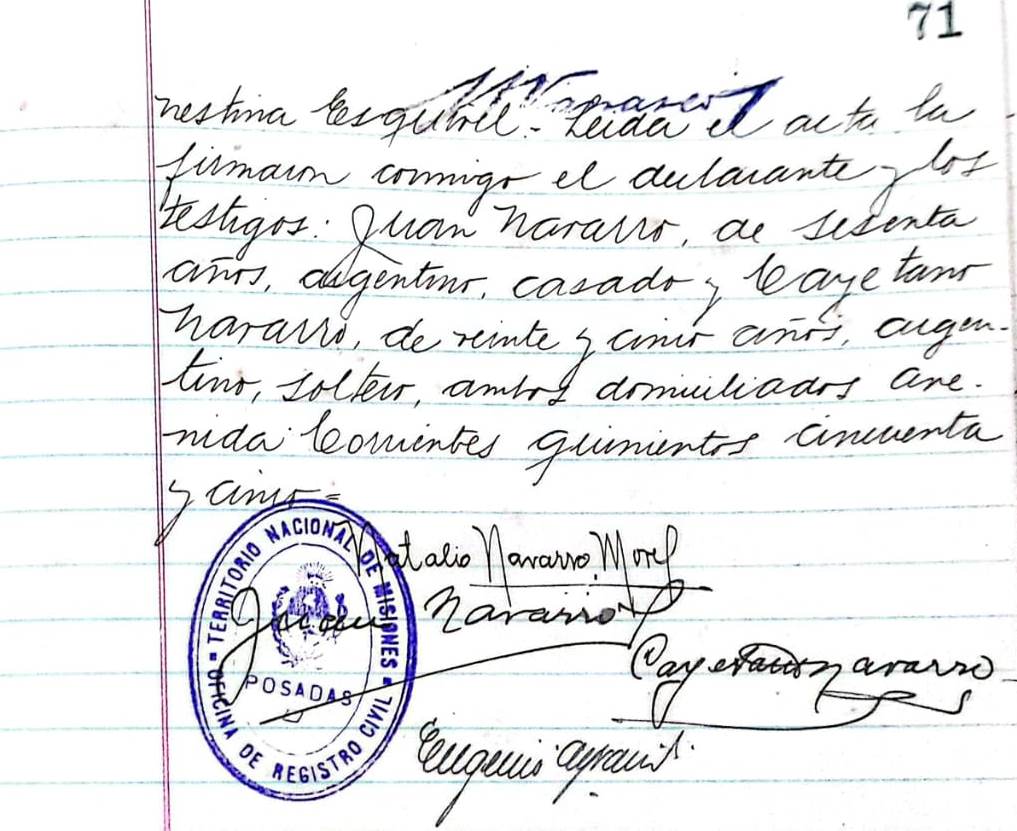 71
nestina Esquivel.- Leida el acta la
firmaron conmigo el declarante y los
testigos: Juan Navarro, de sesenta
años, argentino, casado y Cayetano
Navarro, de veinte y cinco años, argen-
tino, soltero, ambos domiciliados ave-
nida Corrientes quinientos cincuenta
y cinco=
Natalio Navarro Morel
Juan Navarro
Cayetano Navarro
Eugenio
OFICINA DE REGISTRO CIVIL = TERRITORIO NACIONAL DE MISIONES =
POSADAS